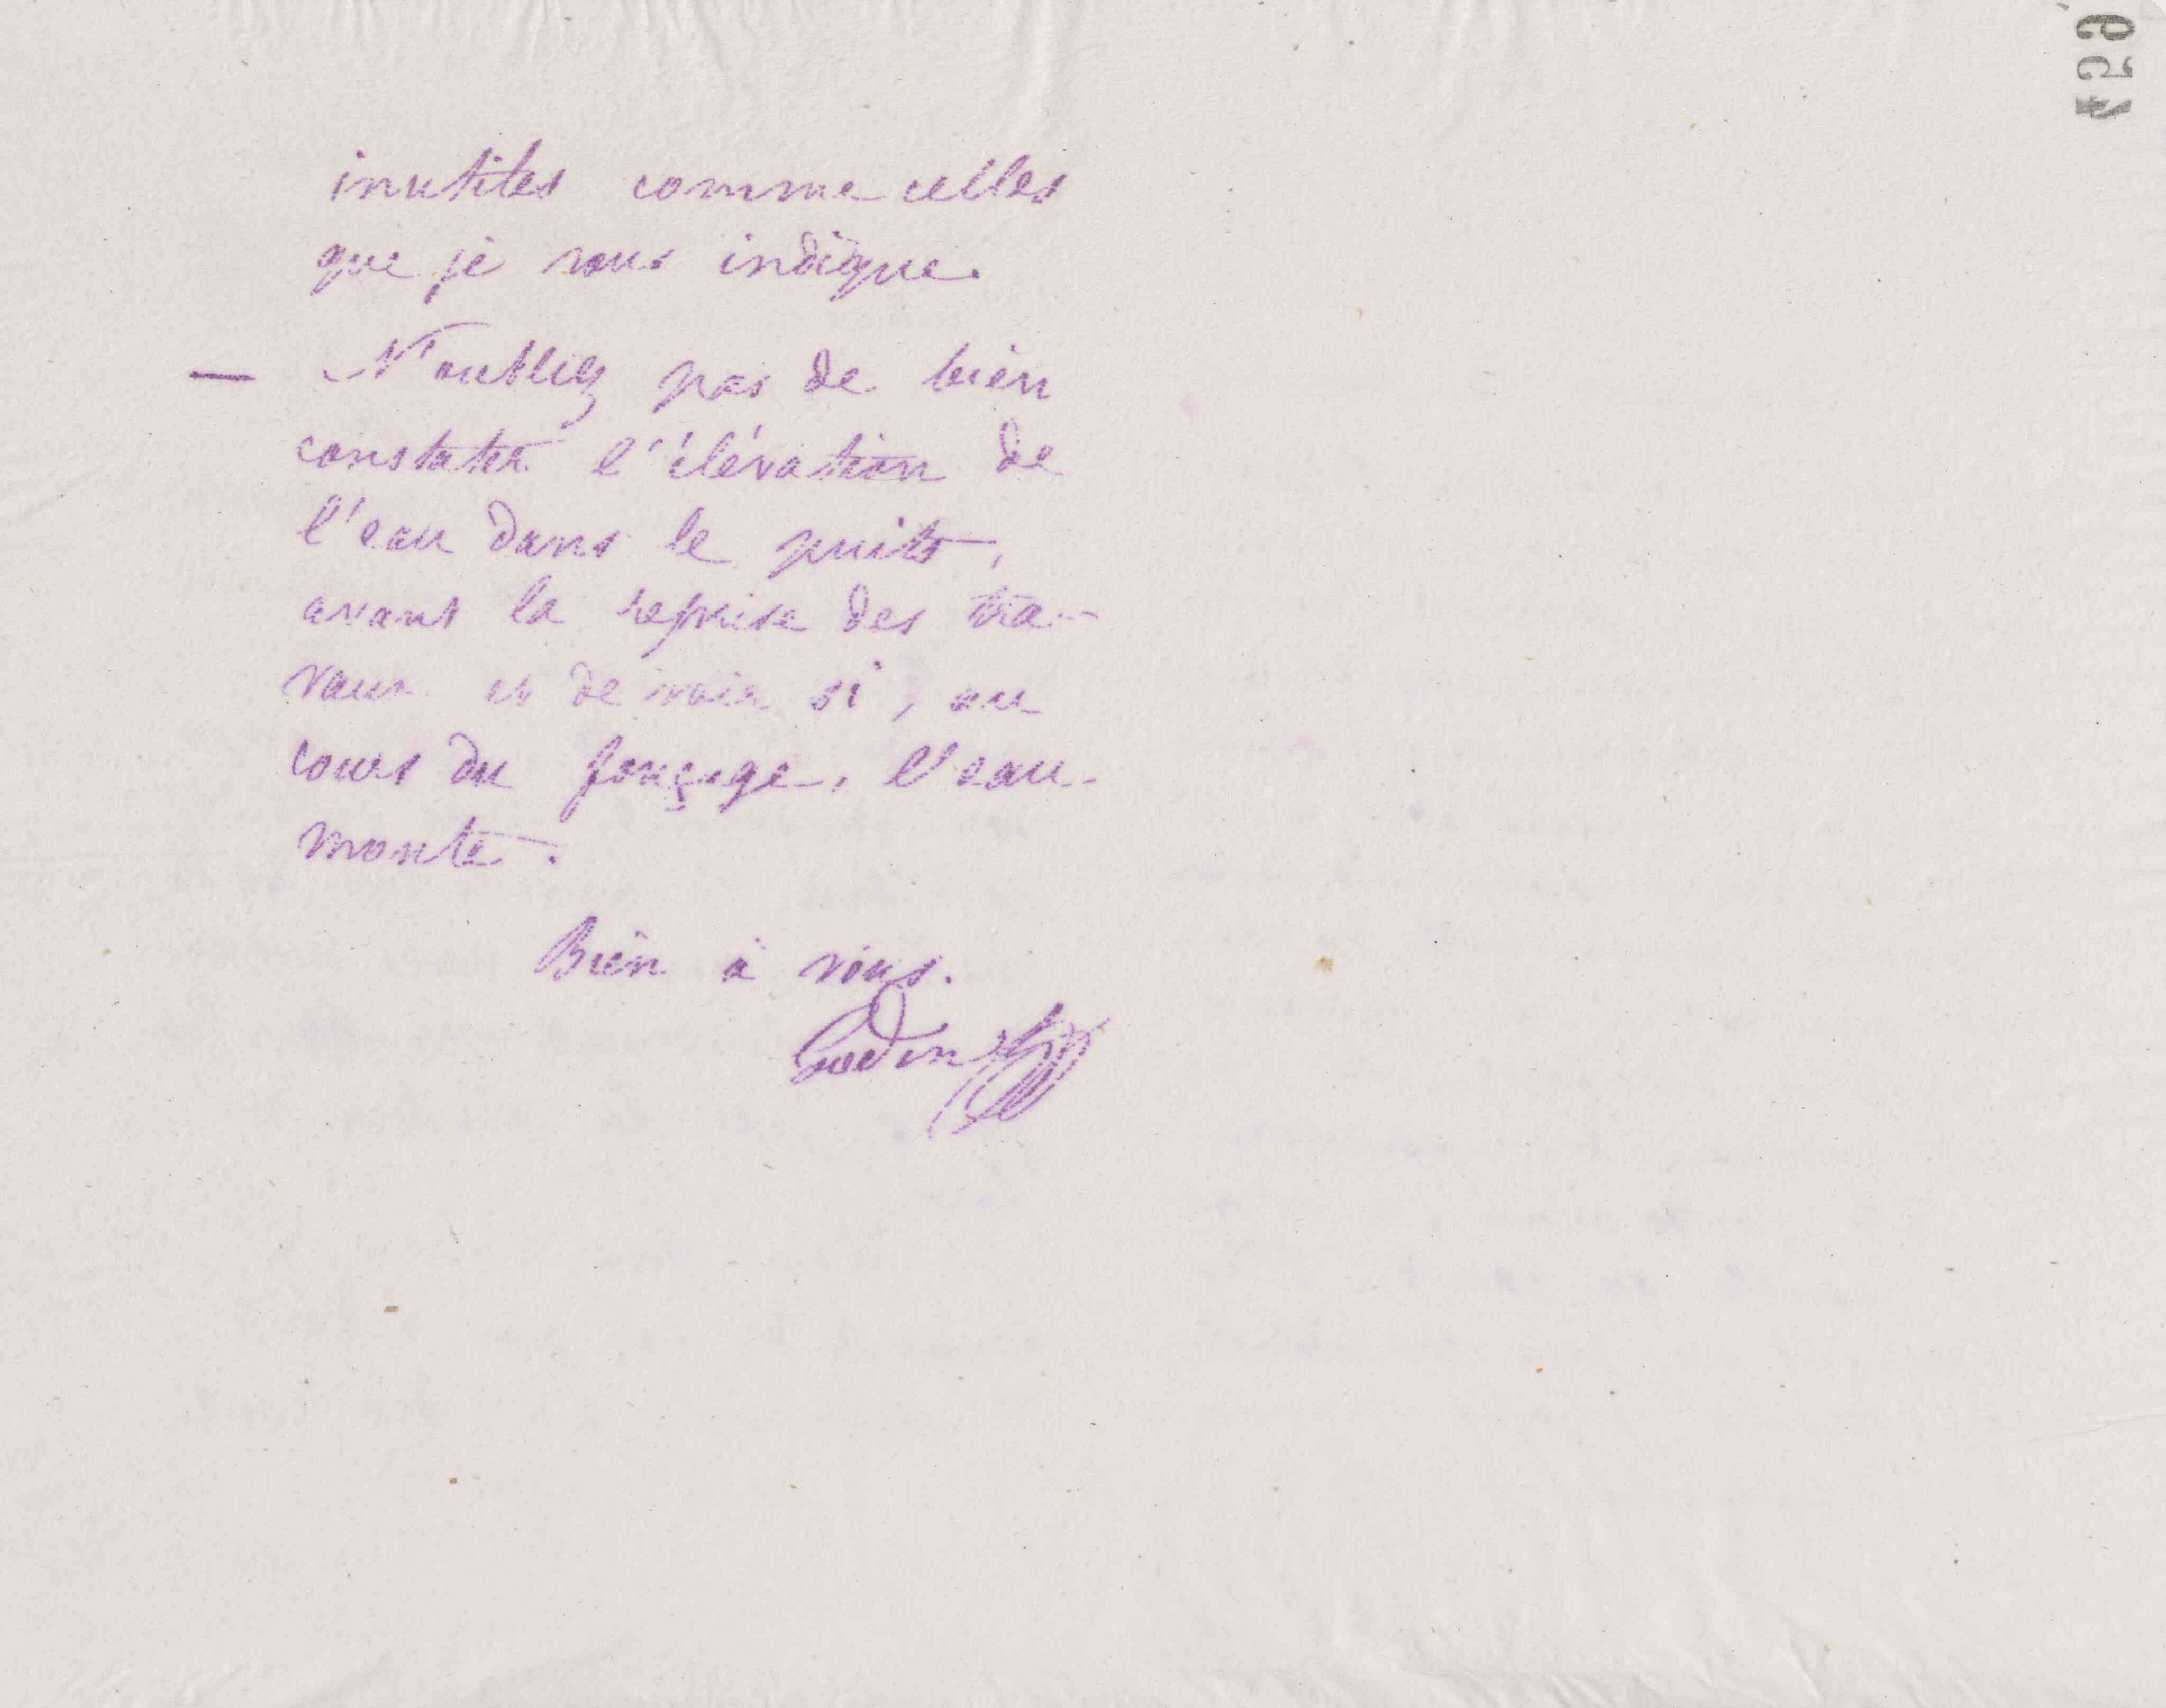 inutiles comme celles
que je vous indique.
— N'oubliez pas de bien
constater l'élévation de
l'eau dans le puits,
avant la reprise des tra-
vaux et de voir si, au
cours du fonçage, l'eau
monte.
Bien à vous.
Godin